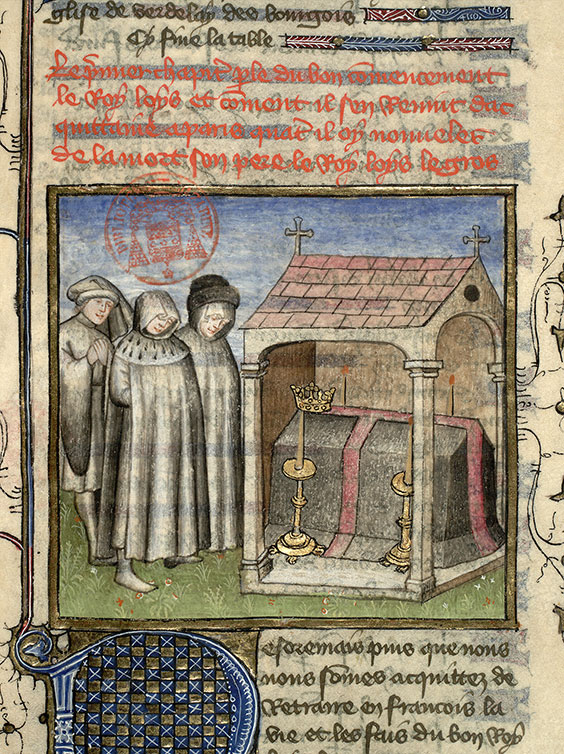 glise de verdelay des bourgois
Cy fine la table
Le p̃mier chapit̃ p̃le du bon cõmencement
le Roy loys et cõment il sen Revint dac
quittaine a paris quãt il oy nouueles
de la mort son pere le Roy loys legros
esoremais puis que nous
nous sõmes acquittez de
Retraire en francois la
vie et les fais du bon Roy